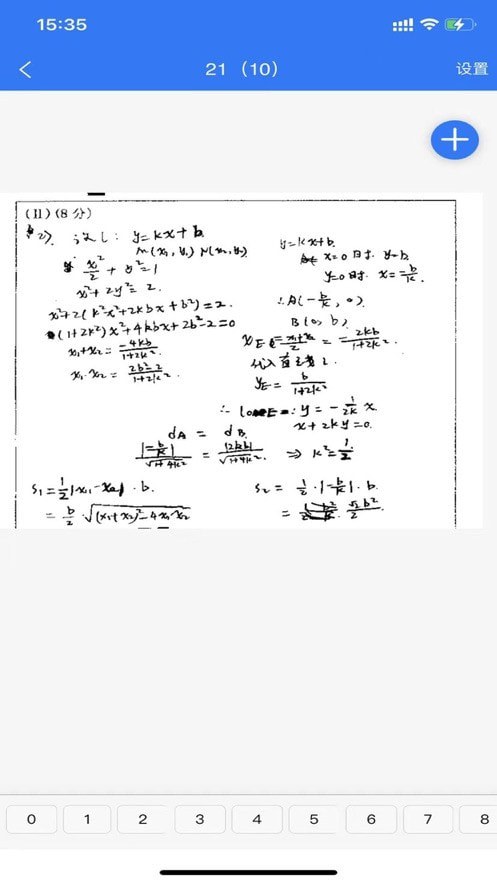 15:35
21（10）
设置
(II)(8分)
(2) 设l: y=kx+b.
M(x₁, y₁) N(x₂, y₂)
x²/2 + y²=1
x²+2y²=2.
x²+2(k²x²+2kbx+b²)=2.
(1+2k²)x²+4kbx+2b²-2=0
x₁+x₂=-4kb/1+2k².
x₁·x₂=2b²-2/1+2k².
y=kx+b.
x=0时. y=b.
y=0时. x=-b/k.
∴A(-b/k, 0).
B(0, b).
x_E=x₁+x₂/2=-2kb/1+2k².
代入直线l.
y_E=b/1+2k²
∴l: y=-1/2k x
x+2ky=0.
d_A = d_B.
|-b/k|/√1+4k² = |2kb|/√1+4k² ⇒ k²=1/2
S₁=1/2|x₁-x₂|·b.
=b/2·√(x₁+x₂)²-4x₁x₂
S₂=1/2·|-b/k|·b.
=√2b²/2
+
0
1
2
3
4
5
6
7
8